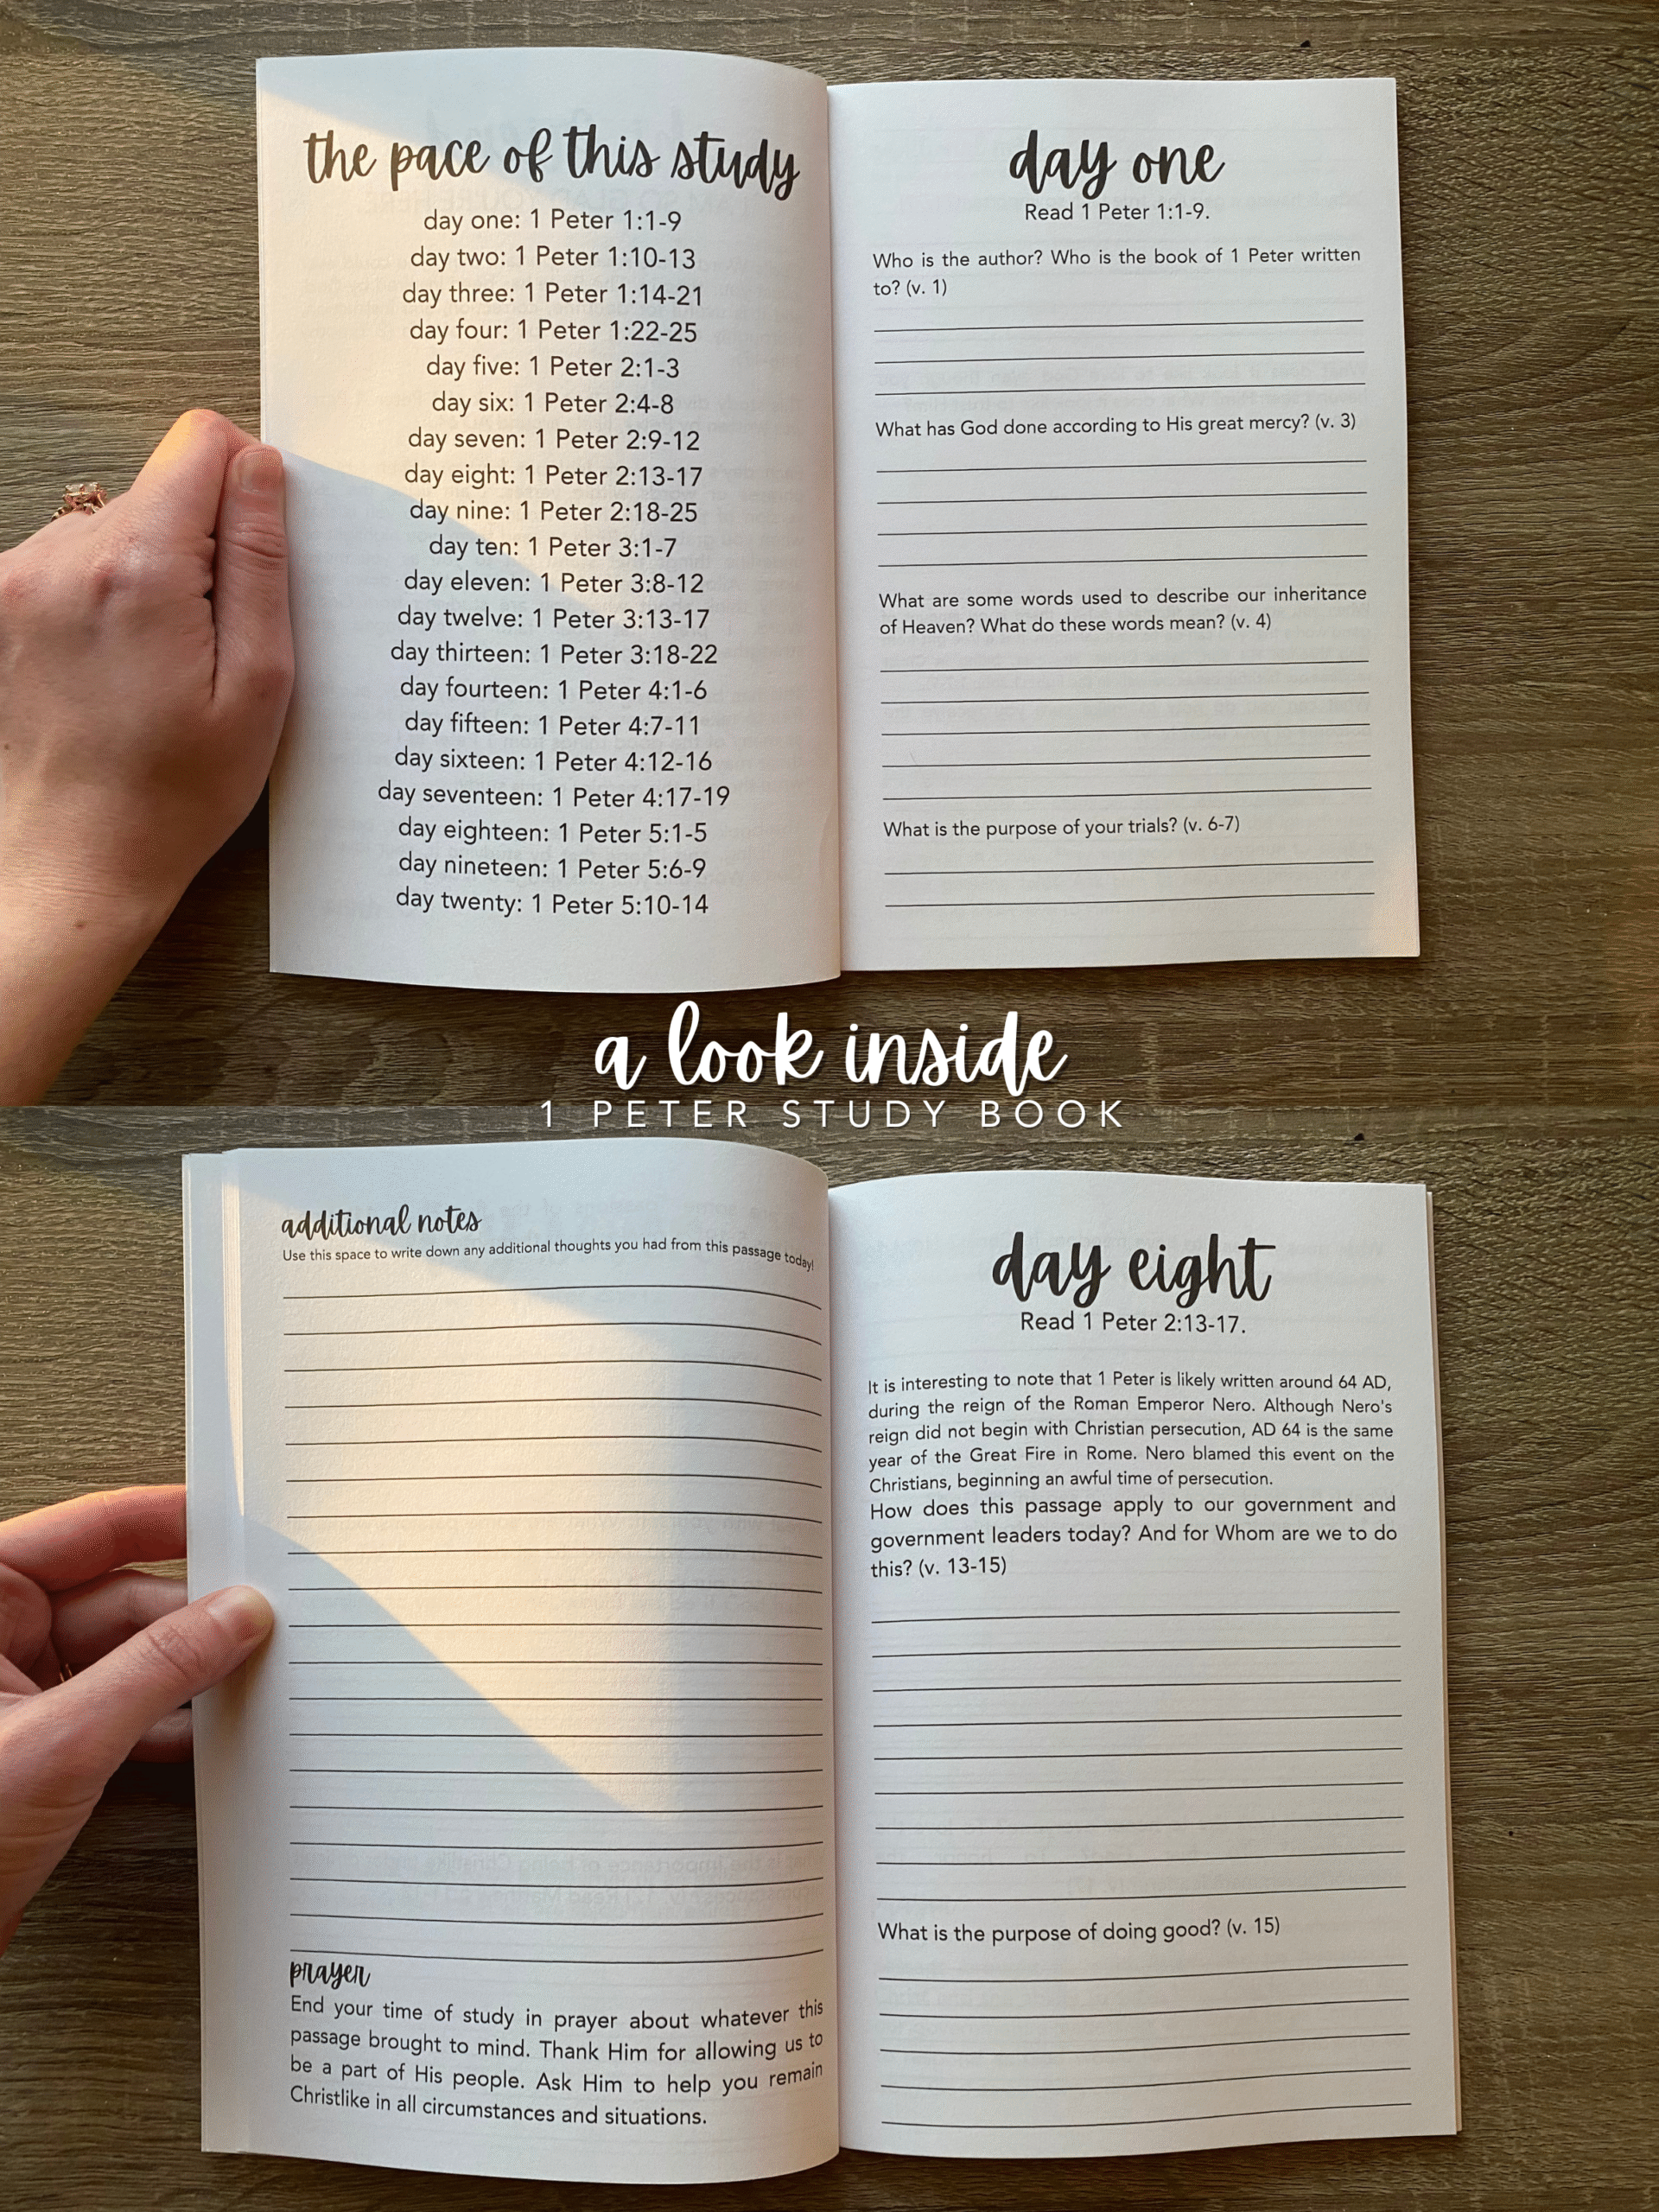 the pace of this study
day one: 1 Peter 1:1-9
day two: 1 Peter 1:10-13
day three: 1 Peter 1:14-21
day four: 1 Peter 1:22-25
day five: 1 Peter 2:1-3
day six: 1 Peter 2:4-8
day seven: 1 Peter 2:9-12
day eight: 1 Peter 2:13-17
day nine: 1 Peter 2:18-25
day ten: 1 Peter 3:1-7
day eleven: 1 Peter 3:8-12
day twelve: 1 Peter 3:13-17
day thirteen: 1 Peter 3:18-22
day fourteen: 1 Peter 4:1-6
day fifteen: 1 Peter 4:7-11
day sixteen: 1 Peter 4:12-16
day seventeen: 1 Peter 4:17-19
day eighteen: 1 Peter 5:1-5
day nineteen: 1 Peter 5:6-9
day twenty: 1 Peter 5:10-14
day one
Read 1 Peter 1:1-9.
Who is the author? Who is the book of 1 Peter written
to? (v. 1)
What has God done according to His great mercy? (v. 3)
What are some words used to describe our inheritance
of Heaven? What do these words mean? (v. 4)
What is the purpose of your trials? (v. 6-7)
a look inside
1 PETER STUDY BOOK
additional notes
Use this space to write down any additional thoughts you had from this passage today!
prayer
End your time of study in prayer about whatever this
passage brought to mind. Thank Him for allowing us to
be a part of His people. Ask Him to help you remain
Christlike in all circumstances and situations.
day eight
Read 1 Peter 2:13-17.
It is interesting to note that 1 Peter is likely written around 64 AD,
during the reign of the Roman Emperor Nero. Although Nero's
reign did not begin with Christian persecution, AD 64 is the same
year of the Great Fire in Rome. Nero blamed this event on the
Christians, beginning an awful time of persecution.
How does this passage apply to our government and
government leaders today? And for Whom are we to do
this? (v. 13-15)
What is the purpose of doing good? (v. 15)